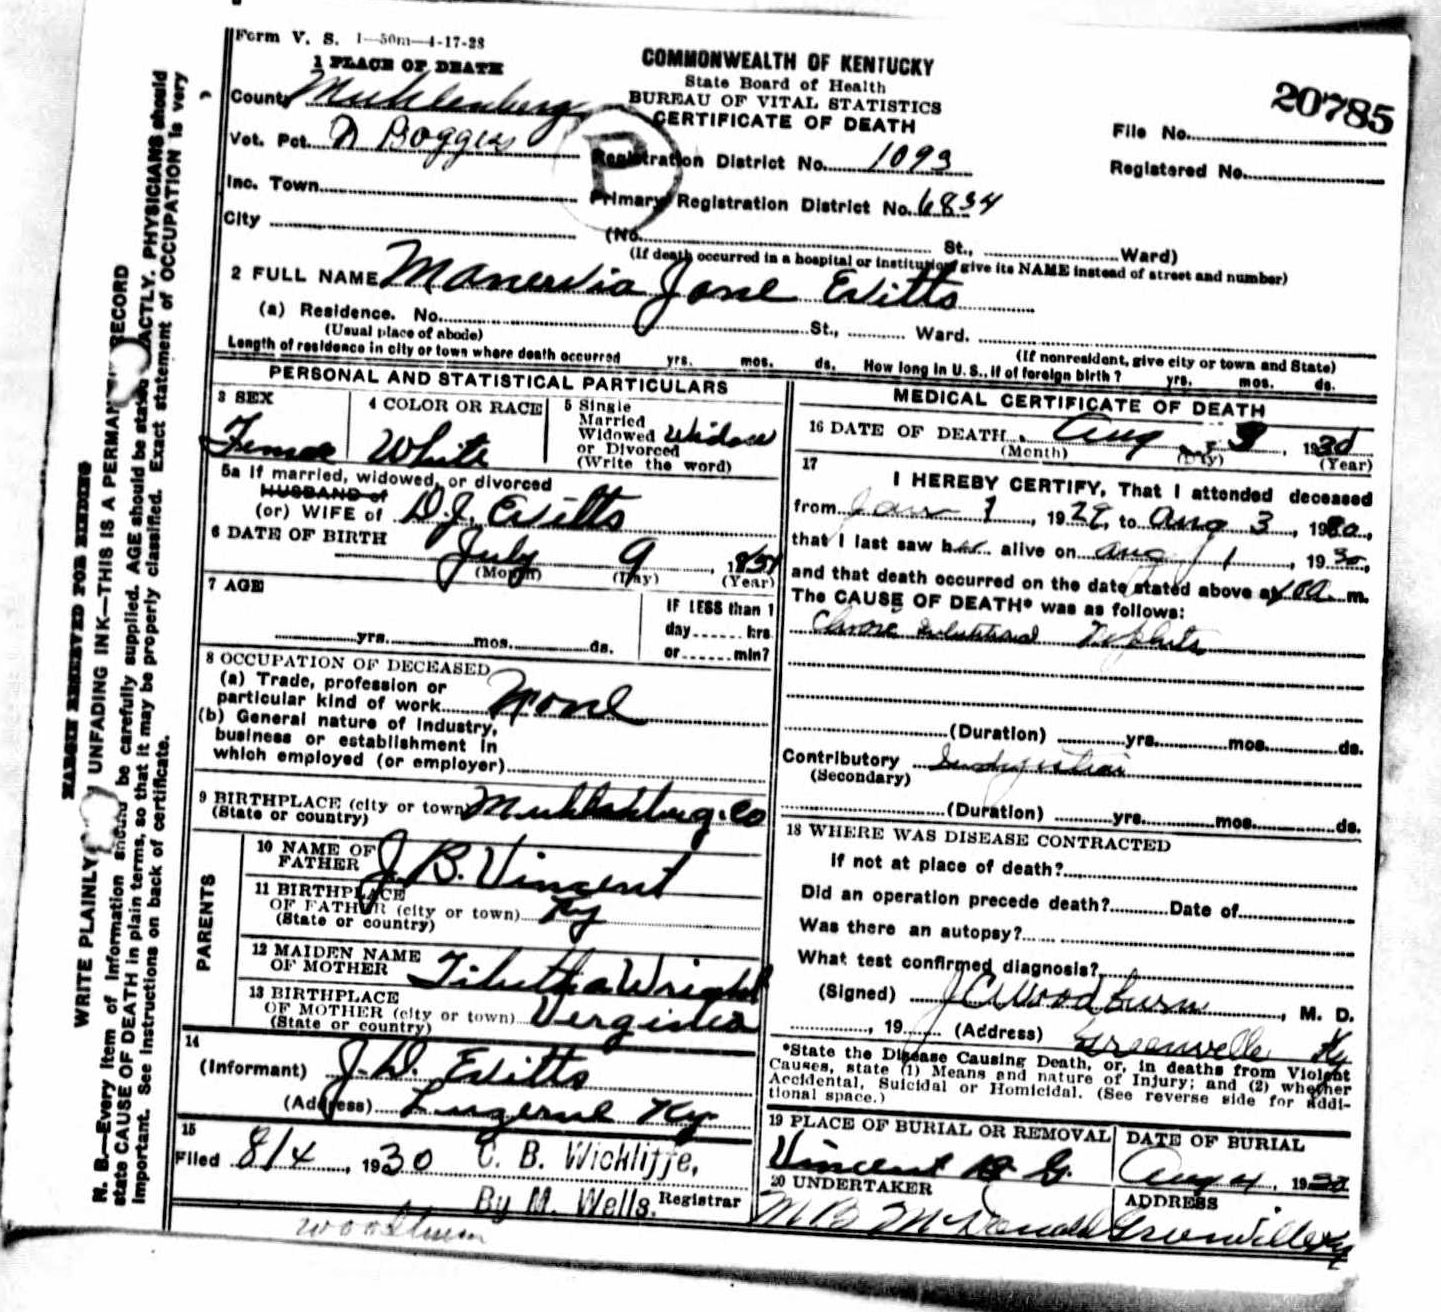 Form V. S. 1—50m—4-17-28
1 PLACE OF DEATH
COMMONWEALTH OF KENTUCKY
State Board of Health
BUREAU OF VITAL STATISTICS
CERTIFICATE OF DEATH
20785
County Muhlenberg
File No.
Vot. Pct. Boggess
P
Registration District No. 1093
Registered No.
Inc. Town
Primary Registration District No. 6834
City
(No. St., Ward)
(If death occurred in a hospital or institution, give its NAME instead of street and number)
2 FULL NAME Manervia Jane Evitts
(a) Residence. No. St., Ward.
(Usual place of abode)
(If nonresident, give city or town and State)
Length of residence in city or town where death occurred yrs. mos. ds. How long in U.S., if of foreign birth? yrs. mos. ds.
PERSONAL AND STATISTICAL PARTICULARS
3 SEX
4 COLOR OR RACE
5 Single
Married
Widowed
or Divorced
(Write the word)
Widow
White
5a If married, widowed, or divorced
HUSBAND of
(or) WIFE of D.J. Evitts
6 DATE OF BIRTH
July 9
(Month) (Day) (Year)
7 AGE
yrs. mos. ds.
IF LESS than 1
day hrs
or min?
8 OCCUPATION OF DECEASED
(a) Trade, profession or
particular kind of work None
(b) General nature of industry,
business or establishment in
which employed (or employer)
9 BIRTHPLACE (city or town)
(State or country)
PARENTS
10 NAME OF
FATHER J. B. Vincent
11 BIRTHPLACE
OF FATHER (city or town) Ky
(State or country)
12 MAIDEN NAME
OF MOTHER Tibitha Wright
13 BIRTHPLACE
OF MOTHER (city or town) Verginia
(State or country)
14
(Informant) J. D. Evitts
(Address) Luzerne Ky
15
Filed 8/4, 1930 C. B. Wickliffe,
By M. Wells. Registrar
Woodburn
MEDICAL CERTIFICATE OF DEATH
16 DATE OF DEATH Aug 3, 1930
(Month) (Day) (Year)
17
I HEREBY CERTIFY, That I attended deceased
from Jan 1, 1929, to Aug 3, 1930,
that I last saw her alive on Aug 1, 1930,
and that death occurred on the date stated above at m.
The CAUSE OF DEATH* was as follows:
Nephritis
(Duration) yrs. mos. ds.
Contributory
(Secondary)
(Duration) yrs. mos. ds.
18 WHERE WAS DISEASE CONTRACTED
If not at place of death?
Did an operation precede death? Date of
Was there an autopsy?
What test confirmed diagnosis?
(Signed) J C Woodburn, M. D.
, 19 (Address) Greenville Ky
*State the Disease Causing Death, or, in deaths from Violent
Causes, state (1) Means and nature of Injury; and (2) whether
Accidental, Suicidal or Homicidal. (See reverse side for addi-
tional space.)
19 PLACE OF BURIAL OR REMOVAL
DATE OF BURIAL
Vincent B. G.
Aug 4, 1930
20 UNDERTAKER
ADDRESS
M B McDonald
Greenville Ky
MARGIN RESERVED FOR BINDING
WRITE PLAINLY UNFADING INK—THIS IS A PERMANENT RECORD
N. B.—Every item of information should be carefully supplied. AGE should be stated EXACTLY. PHYSICIANS should
state CAUSE OF DEATH in plain terms, so that it may be properly classified. Exact statement of OCCUPATION is very
important. See instructions on back of certificate.